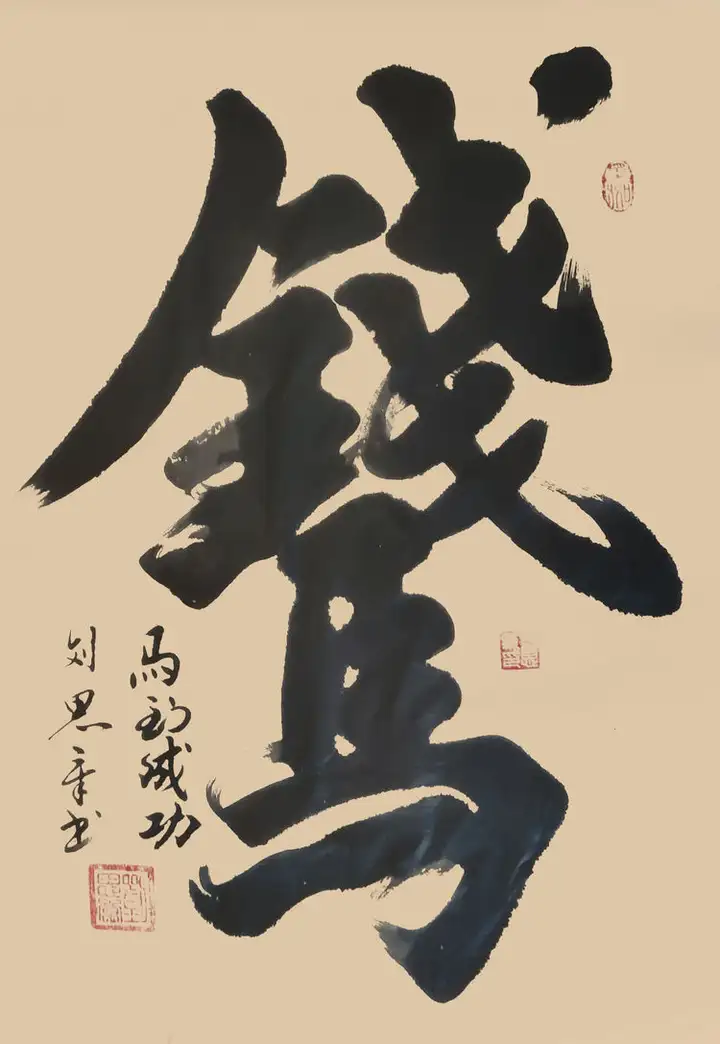 錢馬
馬到成功
刘思书